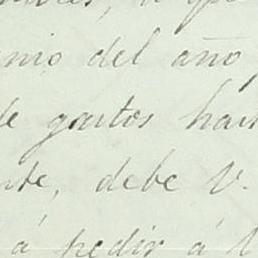 nio del año
de gastos has
nte, debe V.
á pedir á l